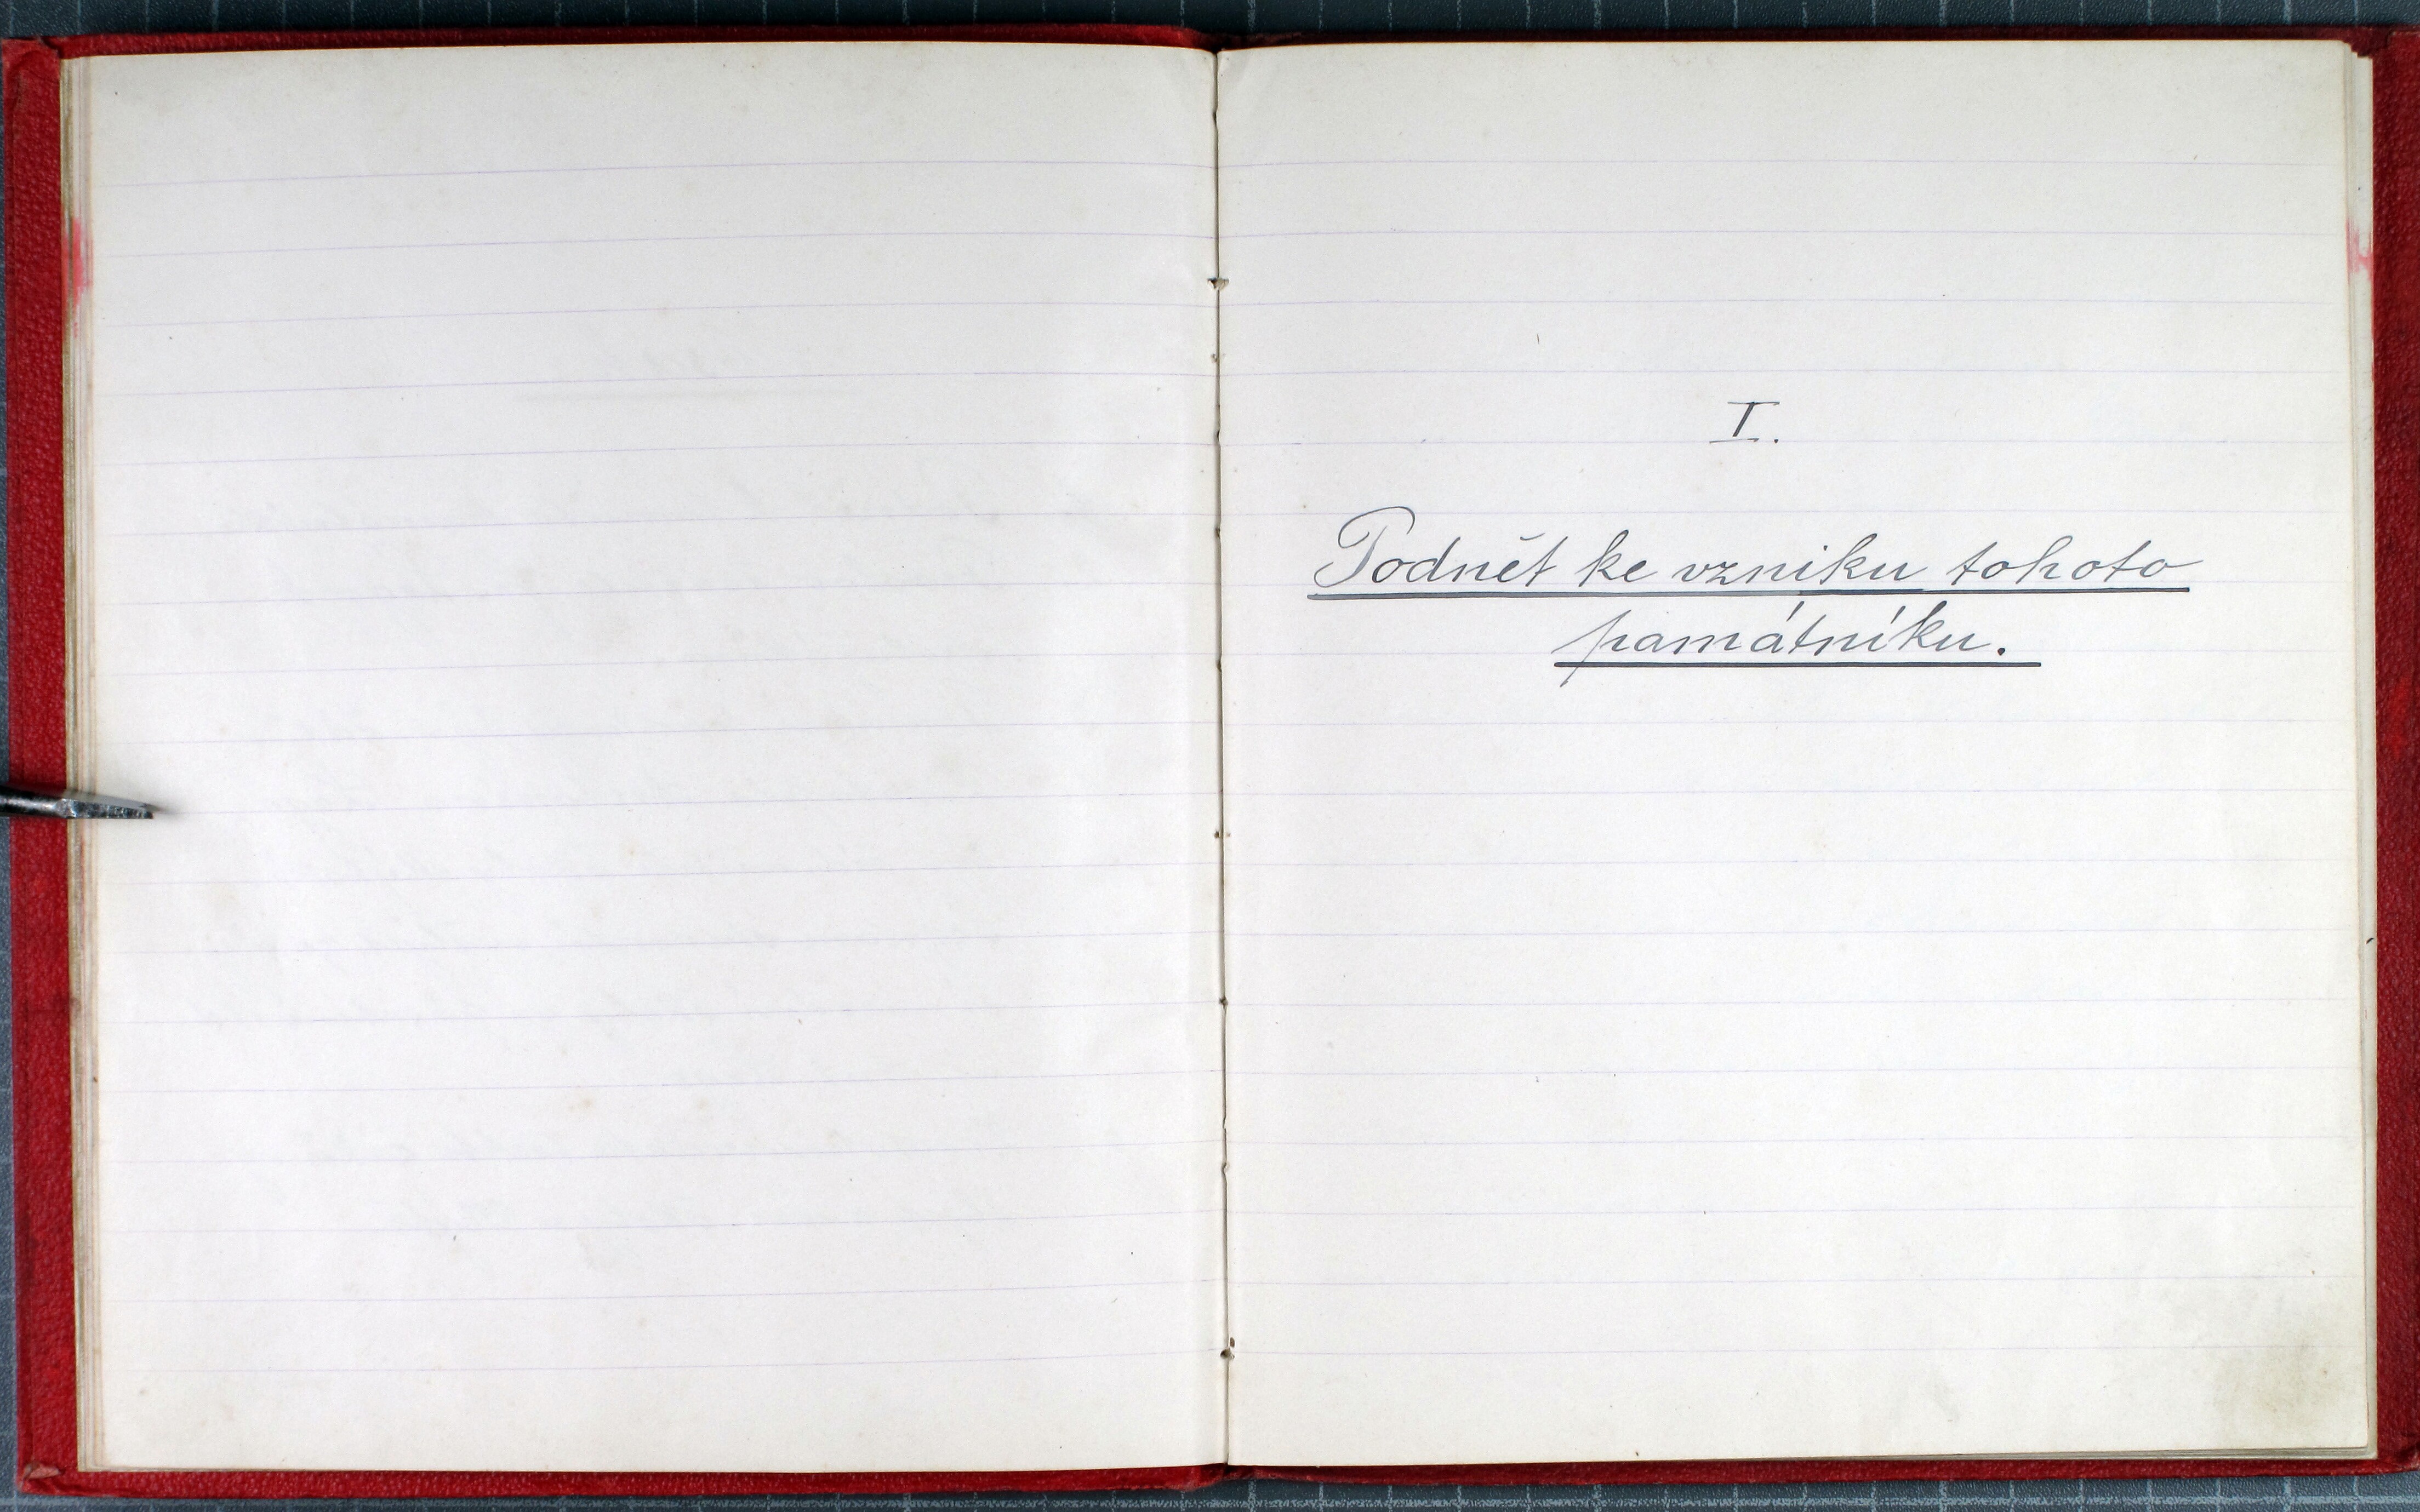 I.
Podnět ke vzniku tohoto
památníku.